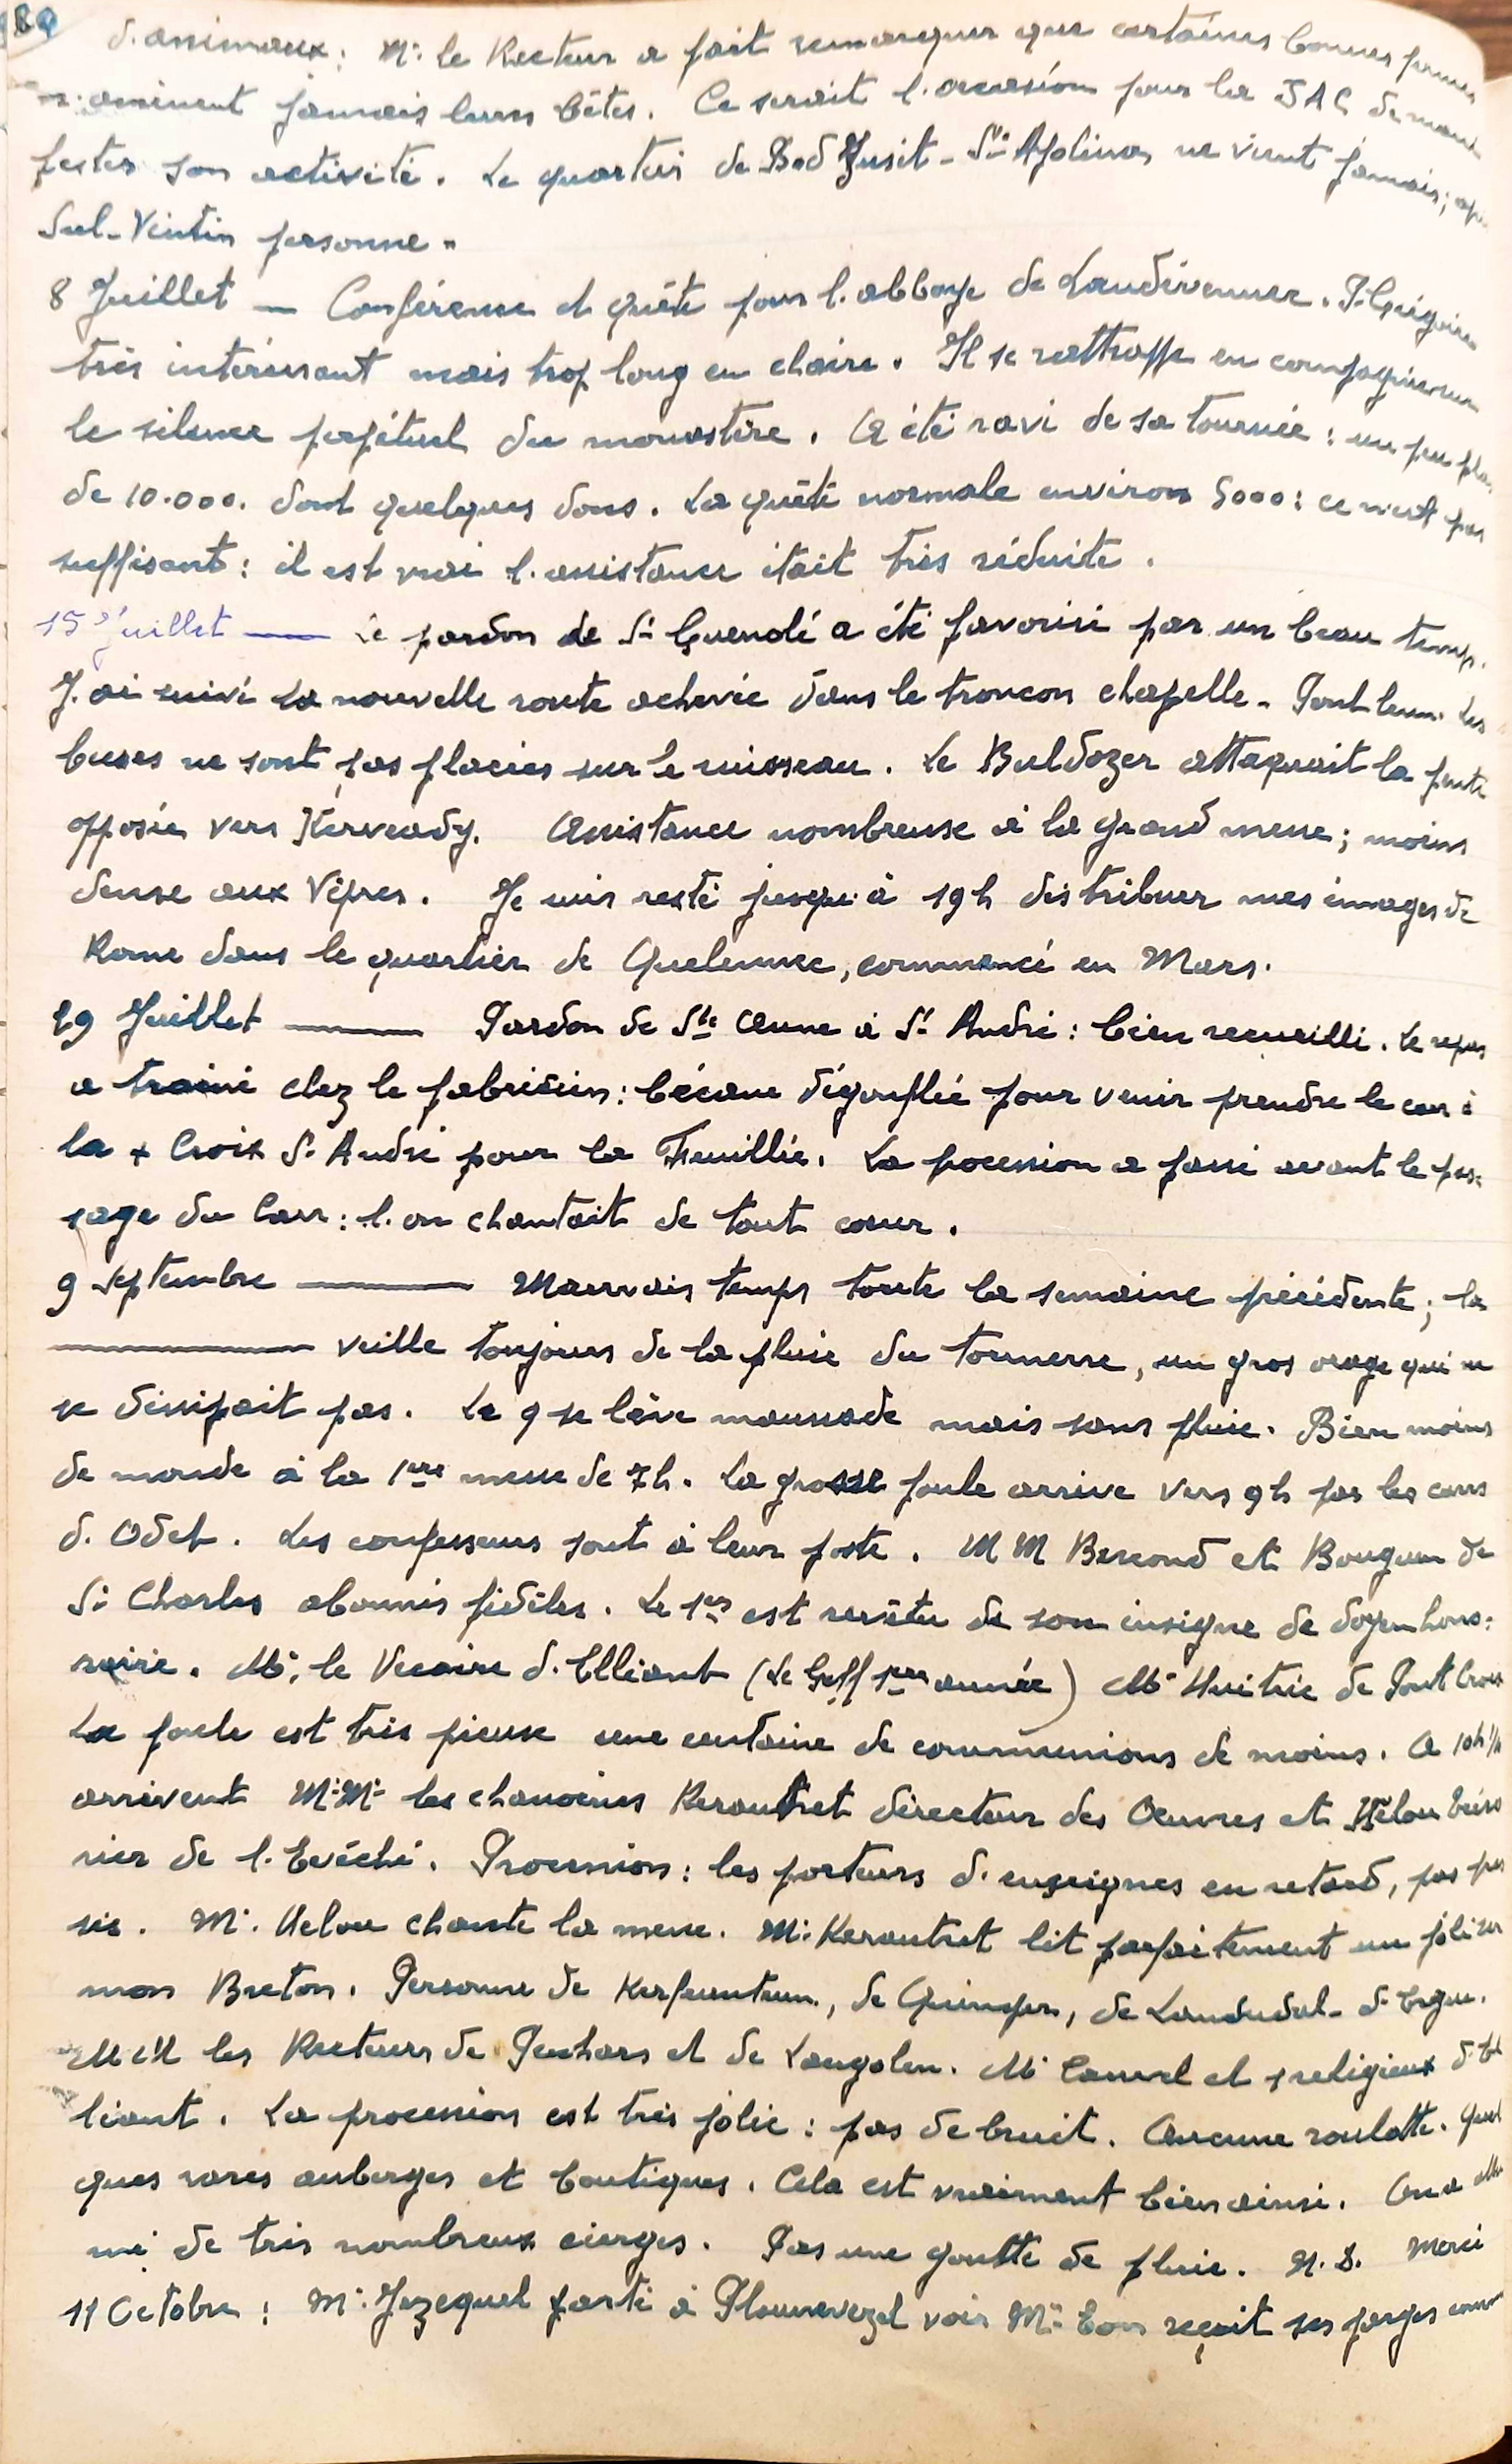 d'animaux : Mr le Recteur a fait remarquer que certaines bonnes fermes
n'amènent jamais leurs bêtes. Ce serait l'occasion pour la JAC de mani
fester son activité. Le quartier de Bod Jusit - St Apolinar ne vient jamais ;
Sul-Vintin personne.
8 Juillet — Conférence et quête pour l'abbaye de Landévennec. P. Grégoire
très intéressant mais trop long en chaire. Il se rattrappe en compagnie
le silence perpétuel du monastère. A été ravi de sa tournée : un peu plus
de 10.000. dont quelques dons. La quête normale environ 5000 : ce n'est pas
suffisant : il est vrai l'assistance était très réduite.
15 Juillet — Le pardon de St Guenolé a été favorisé par un beau temps.
J'ai suivi la nouvelle route achevée dans le troncon chapelle - Les
buses ne sont pas placées sur le ruisseau. Le Buldozer attaquait la pente
opposée vers Kerveady. Assistance nombreuse à la grand messe ; moins
dense aux Vêpres. Je suis resté jusqu'à 19 h distribuer mes images de
Rome dans le quartier de Quelennec, commencé en Mars.
29 Juillet — Pardon de Ste Anne à St André : bien recueilli. Le repas
a trainé chez le fabricien : bécane dégonflée pour venir prendre le car à
la + Croix St André pour la Feuillée. La pocession a passé avant le pas-
sage du Carr : l'on chantait de tout coeur.
9 Septembre — Mauvais temps toute la semaine précédente ; la
veille toujours de la pluie du tonnerre, un gros orage qui ne
se dissipait pas. Le 9 se lève maussade mais sans pluie. Bien moins
de monde à la 1ere messe de 7h. La grosse foule arrive vers 9h par les cars
d'Odet. Les confesseurs sont à leur poste. M M Bescond et Bouguen de
St Charles abonnés fidèles. Le 1er est revêtu de son insigne de doyen hono-
raire. Mr le Vicaire d'Elliant (Le Goff 1ere année) Mr Huitric de Pont Croix
La foule est très pieuse une centaine de communions de moins. A 10h 1/4
arrivent Mr Mr les chanoines Kerautret directeur des Oeuvres et Hélou
rier de l'Evêché. Procession : les porteurs d'enseignes en retard, pas
sée. Mr Helou chante la messe. Mr Kerautret lit parfaitement un joli ser
mon Breton. Personne de Kerfeunteun, de Quimper, de Landudal - d'Ergué.
M M les Recteurs de Penhars et de Langolen. Mr Canvel et religieux d'El
liant. La procession est très jolie : pas de bruit. Aucune roulotte. Quel
ques rares auberges et boutiques. Cela est vraiment bien ainsi. On a allu
mé de très nombreux cierges. Pas une goutte de pluie. N. D. Merci
11 Octobre : Mr Jezequel parti à Plounevezel voir Mr Eon reçoit ses